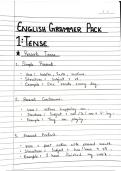 ENGLISH GRAMMER PACK
1: TENSE
* Present Tense
1. Simple Present
- Use : habits, facts, routine
- Structure : Subject + v1
- Example : She reads every day.
2. Present Continuous
- Use : actions happening now
- Structure : Subject + is/am/are + v-ing
- Example : They are playing.
3. Present Perfect
- Use : past action with present result
- Structure : Subject + has/have + v3
- Example : I have finished my work.